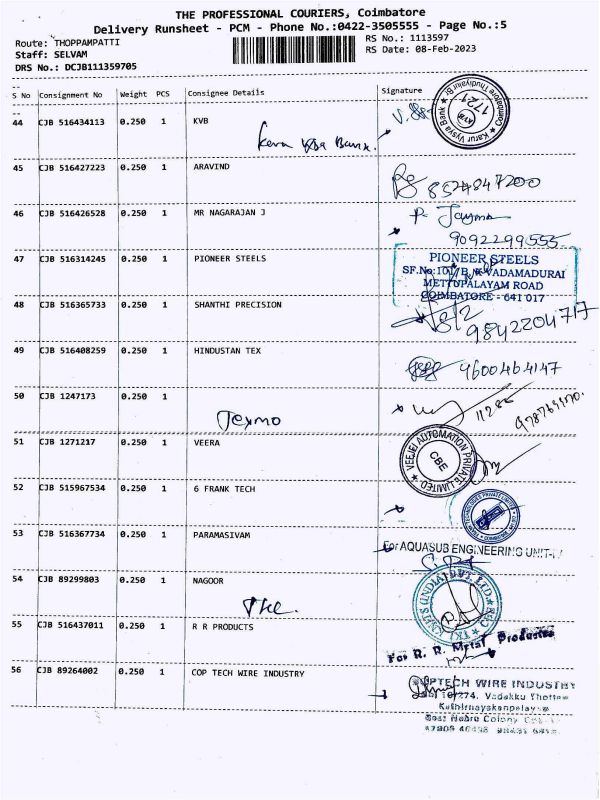 THE PROFESSIONAL COURIERS, Coimbatore
Delivery Runsheet - PCM - Phone No.:0422-3505555 - Page No.:5
Route: THOPPAMPATTI
RS No.: 1113597
Staff: SELVAM
RS Date: 08-Feb-2023
DRS No.: DCJB111359705
S No Consignment No Weight PCS Consignee Details Signature
44 CJB 516434113 0.250 1 KVB
Karur Vysya Bank
1721
45 CJB 516427223 0.250 1 ARAVIND
8524847200
46 CJB 516426528 0.250 1 MR NAGARAJAN J
P. Jayma
9092299555
47 CJB 516314245 0.250 1 PIONEER STEELS
PIONEER STEELS
SF.No:101/B, N.VADAMADURAI
METTUPALAYAM ROAD
COIMBATORE - 641 017
48 CJB 516365733 0.250 1 SHANTHI PRECISION
9842204717
49 CJB 516408259 0.250 1 HINDUSTAN TEX
9600464147
50 CJB 1247173 0.250 1
Texmo
51 CJB 1271217 0.250 1 VEERA
VEEJEI AUTOMATION PRIVATE LIMITED
CBE
52 CJB 515967534 0.250 1 6 FRANK TECH
53 CJB 516367734 0.250 1 PARAMASIVAM
For AQUASUB ENGINEERING UNIT-IV
54 CJB 89299803 0.250 1 NAGOOR
55 CJB 516437011 0.250 1 R R PRODUCTS
For R. R. Metal Products
56 CJB 89264002 0.250 1 COP TECH WIRE INDUSTRY
PTECH WIRE INDUSTRY
Vadakku Thottam
Kathirnayakanpalayam
Nehru Colony